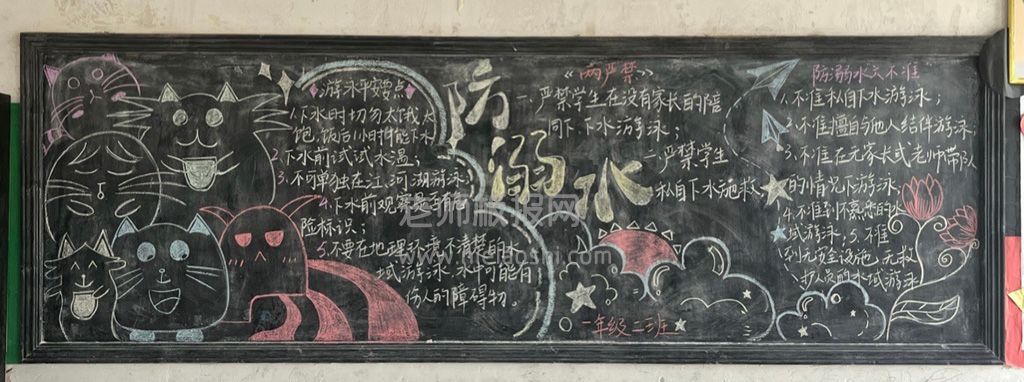 游泳平安要点
1.下水时切勿太饿太
饱,饭后1小时才能下水
2.下水前试试水温;
3.不可单独在江、河湖游泳;
4.下水前观察是否有危
险标识;
5.不要在地理环境不清楚的水
域游泳,水中可能有
伤人的障碍物。
防溺水
《两严禁》
一、严禁学生在没有家长的陪
同下、下水游泳;
二、严禁学生
私自下水施救
一年级二班
防溺水六不准
1.不准私自下水游泳;
2.不准擅自与他人结伴游泳
3.不准在无家长或老师带队
的情况下游泳,
4.不准到不熟悉的水
域游泳;5.不准
到无安全设施、无救
护人员的水域游泳
老师板报网
www.meiaoshi.com